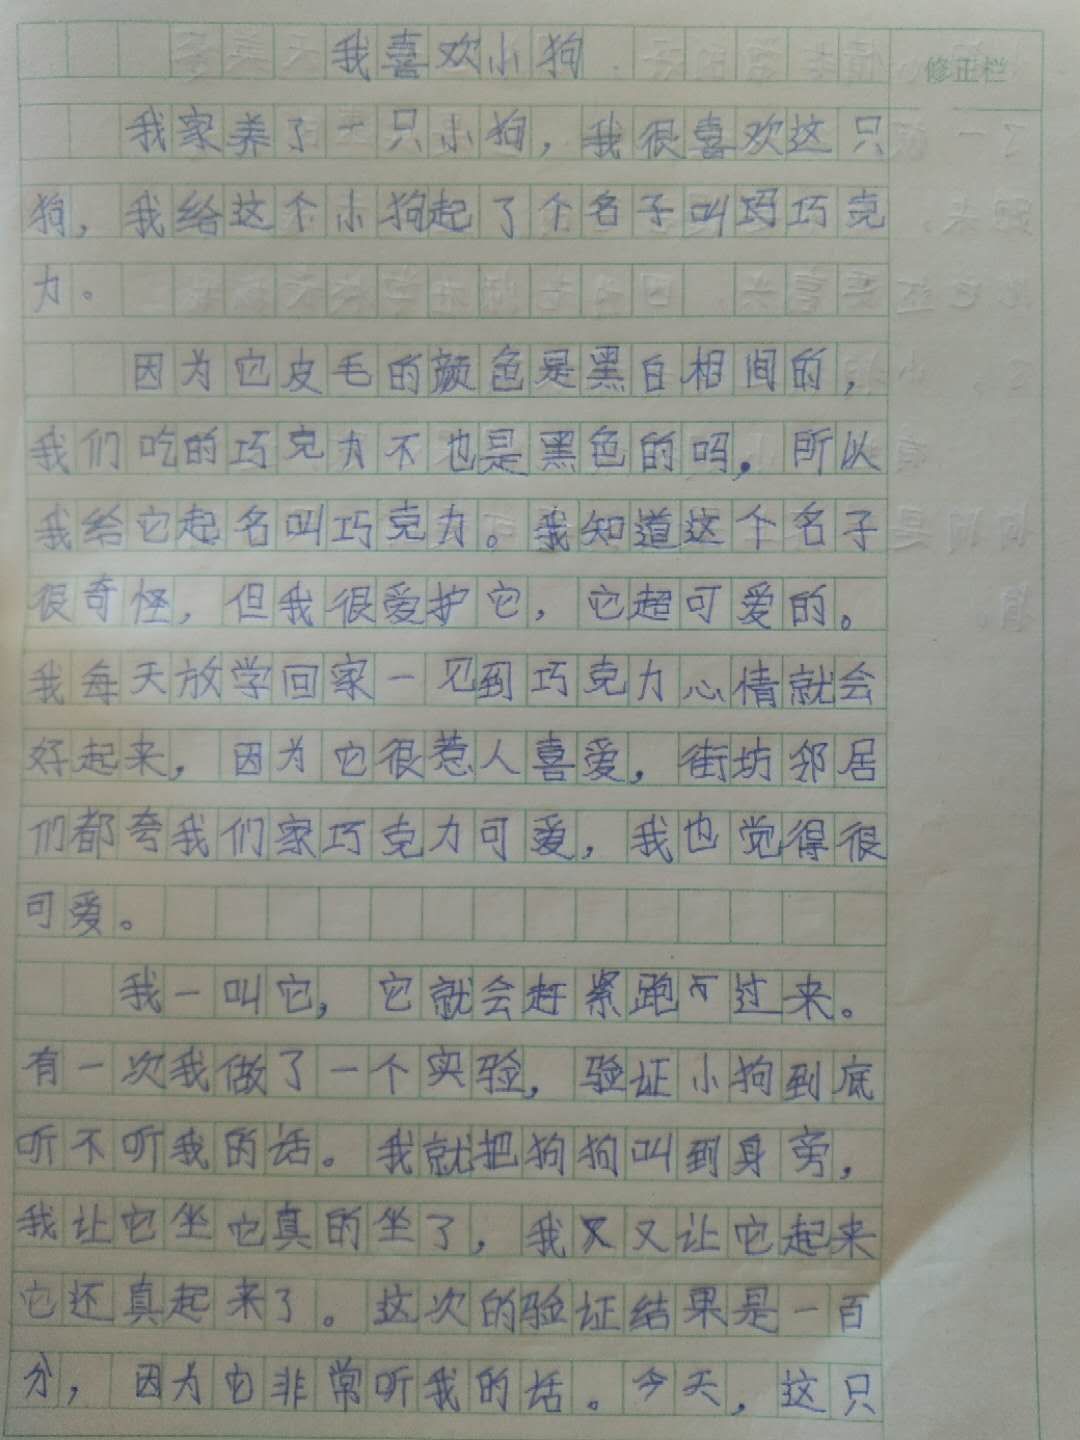 我喜欢小狗
修正栏
我家养了一只小狗，我很喜欢这只
狗，我给这个小狗起了个名子叫巧巧克
力。
因为它皮毛的颜色是黑白相间的，
我们吃的巧克力不也是黑色的吗，所以
我给它起名叫巧克力。我知道这个名子
很奇怪，但我很爱护它，它超可爱的。
我每天放学回家一见到巧克力心情就会
好起来，因为它很惹人喜爱，街坊邻居
们都夸我们家巧克力可爱，我也觉得很
可爱。
我一叫它，它就会赶紧跑过来。
有一次我做了一个实验，验证小狗到底
听不听我的话。我就把狗狗叫到身旁，
我让它坐它真的坐了，我又又让它起来
它还真起来了。这次的验证结果是一百
分，因为它非常听我的话。今天，这只